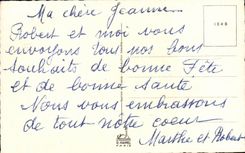 Ma chère Jeanne
Robert et moi vous
envoyons tous nos bons
souhaits de bonne Fête
et de bonne santé
Nous vous embrassons
de tout notre coeur
Marthe et Robert